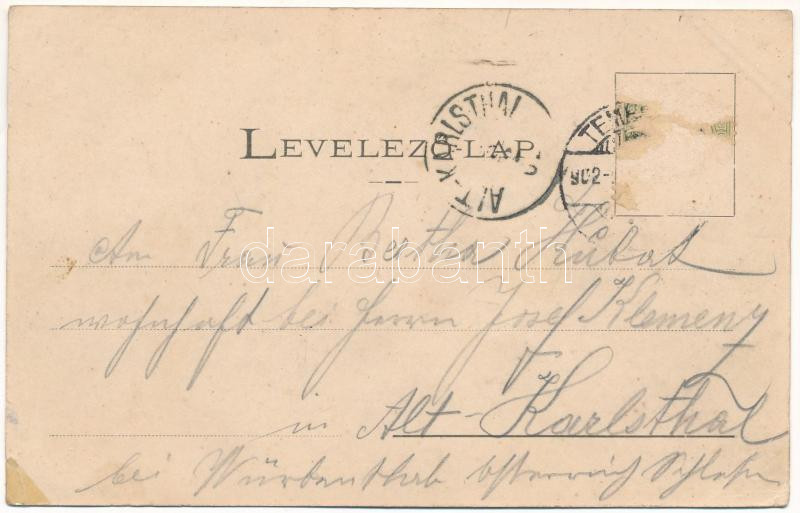 ALT-KARLSTHAL
TEMES
902-
LEVELEZŐ-LAP.
An Frau Bertha Kubat
darabanth
wohnhaft bei Herrn Josef Klemenz
in Alt-Karlsthal
bei Würbenthal österreich Schlesien